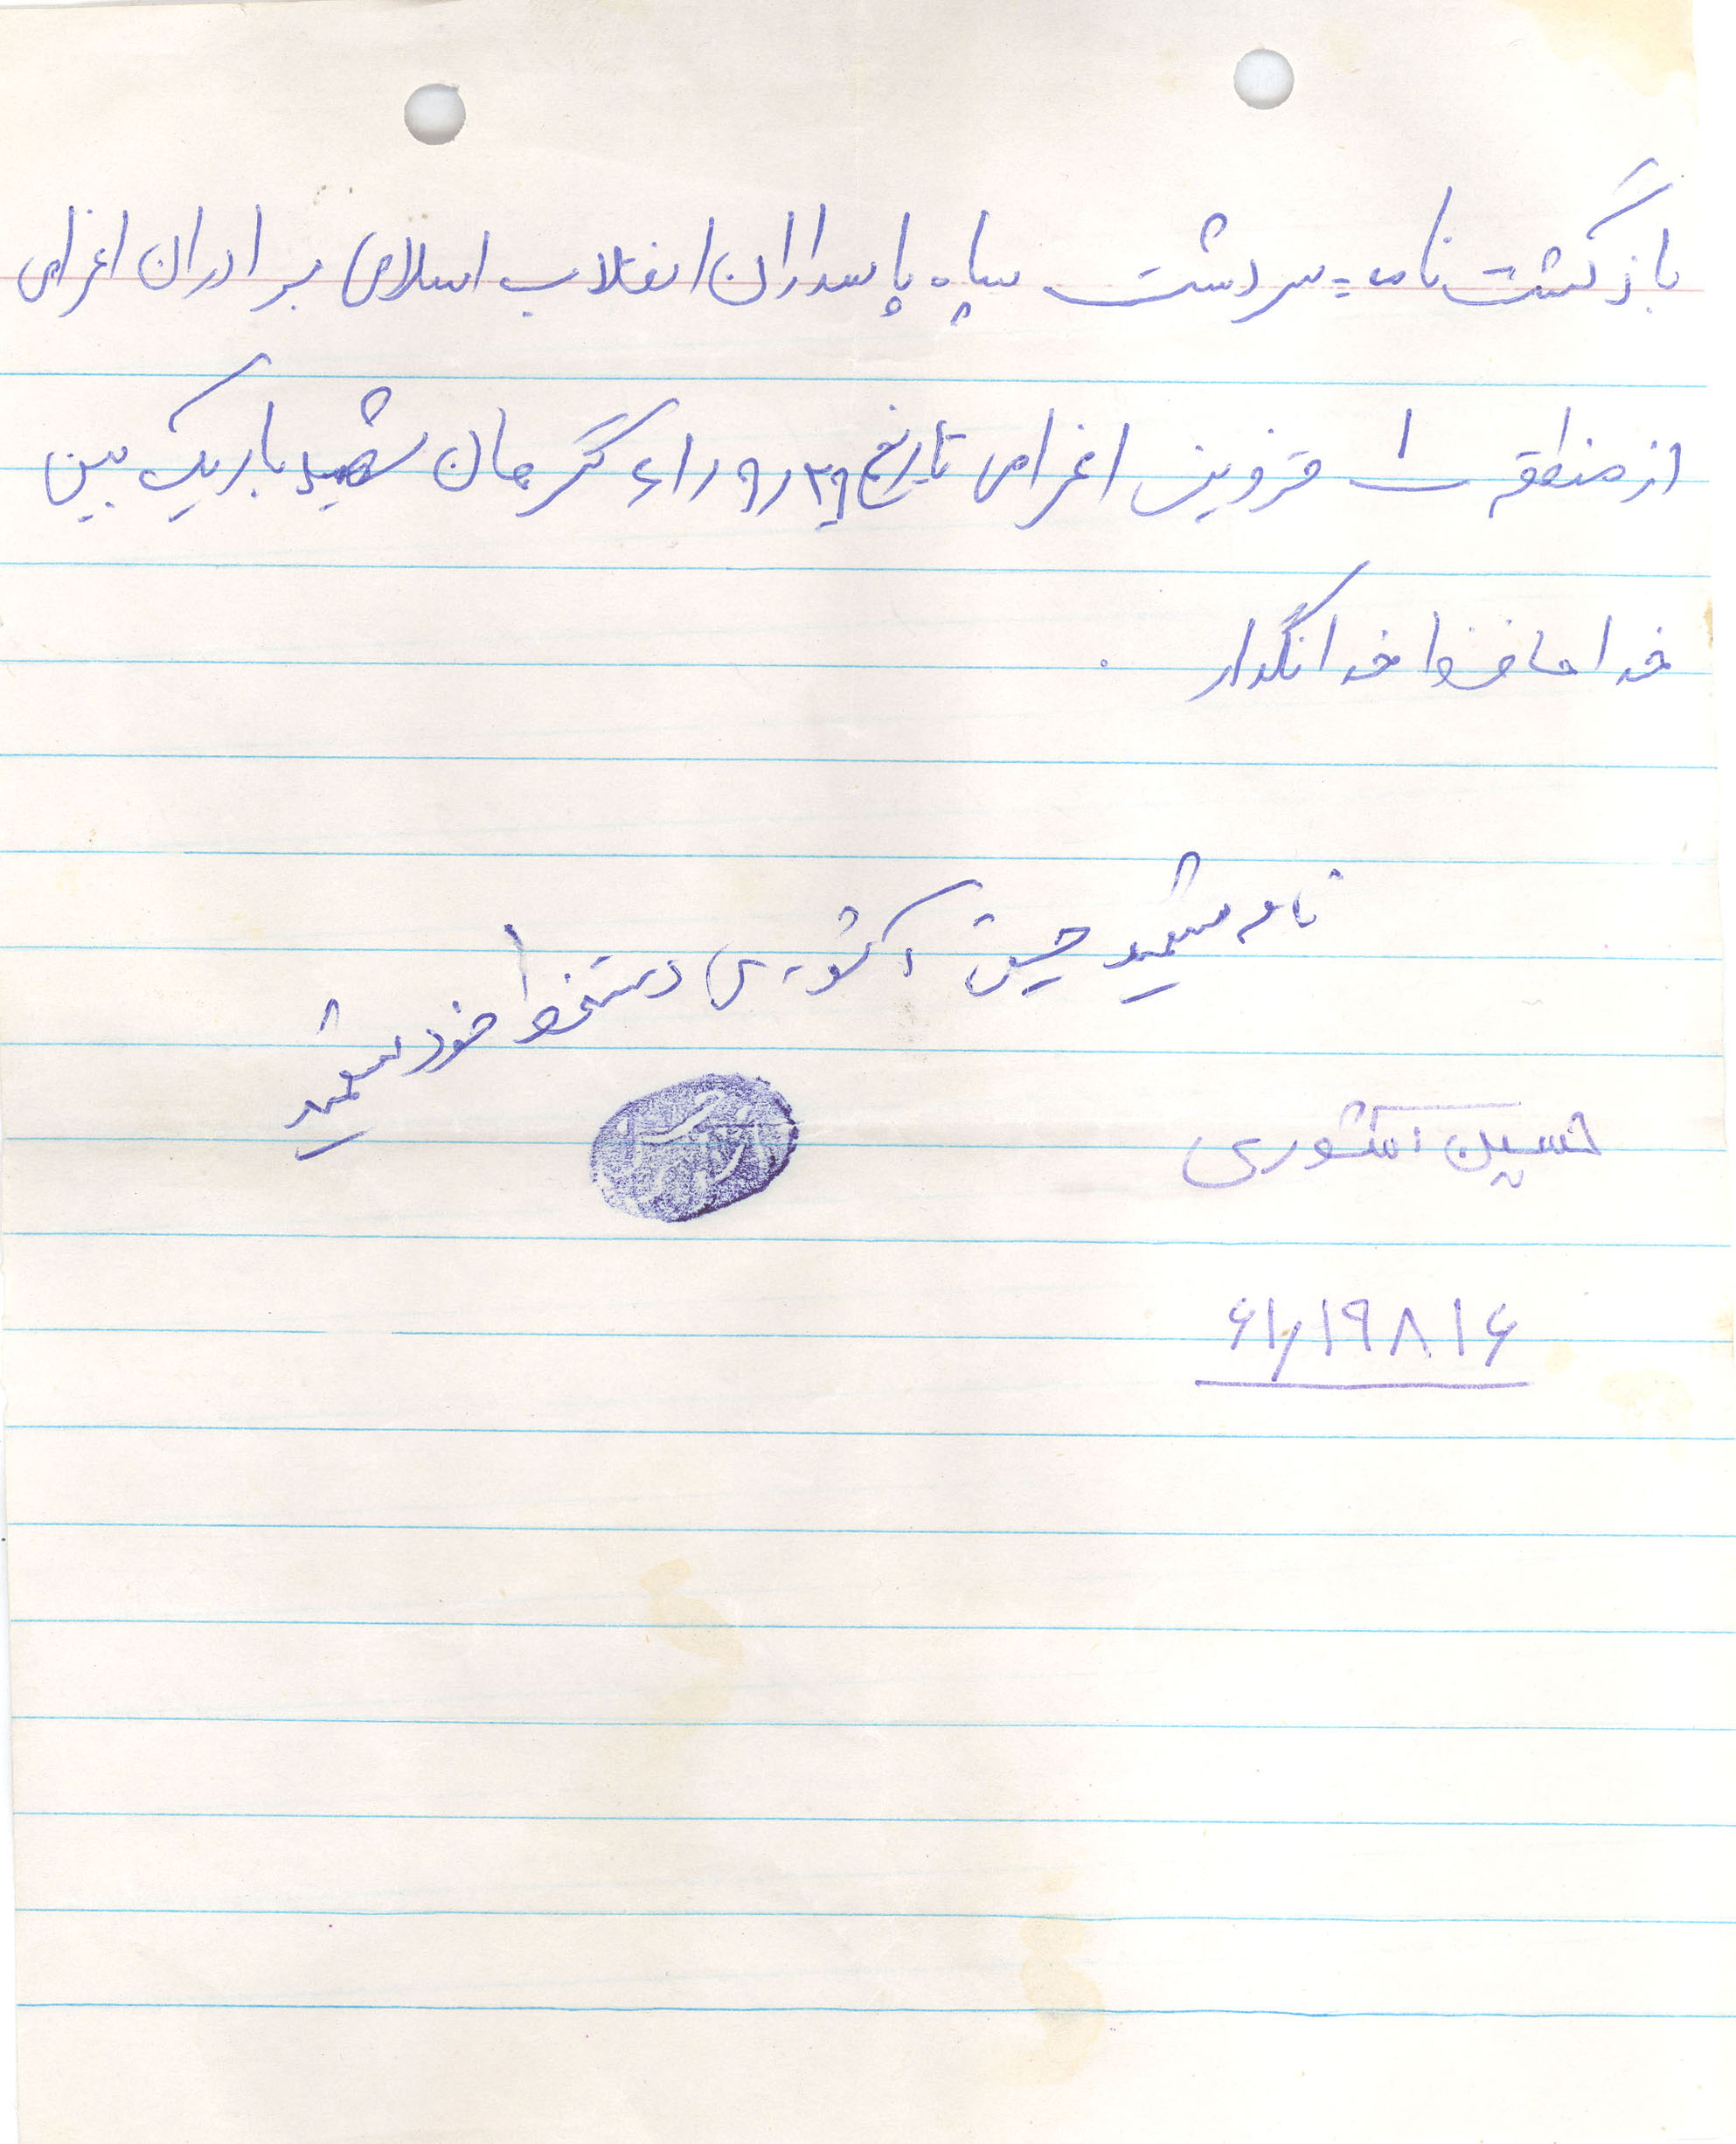 بازگشت نامه = سردشت سپاه پاسداران انقلاب اسلامی برادران اعزامی
از منطقه ۱ قزوین اعزامی تاریخ ۲۹ر۹ر۶۱ گرهان شهید باریک بین
خدا حافظ خدا نگدار .
نامه شهید حسین کشوری دستخط خود شهید
حسین کشوری
۶۱ر۱۹۸۱۶